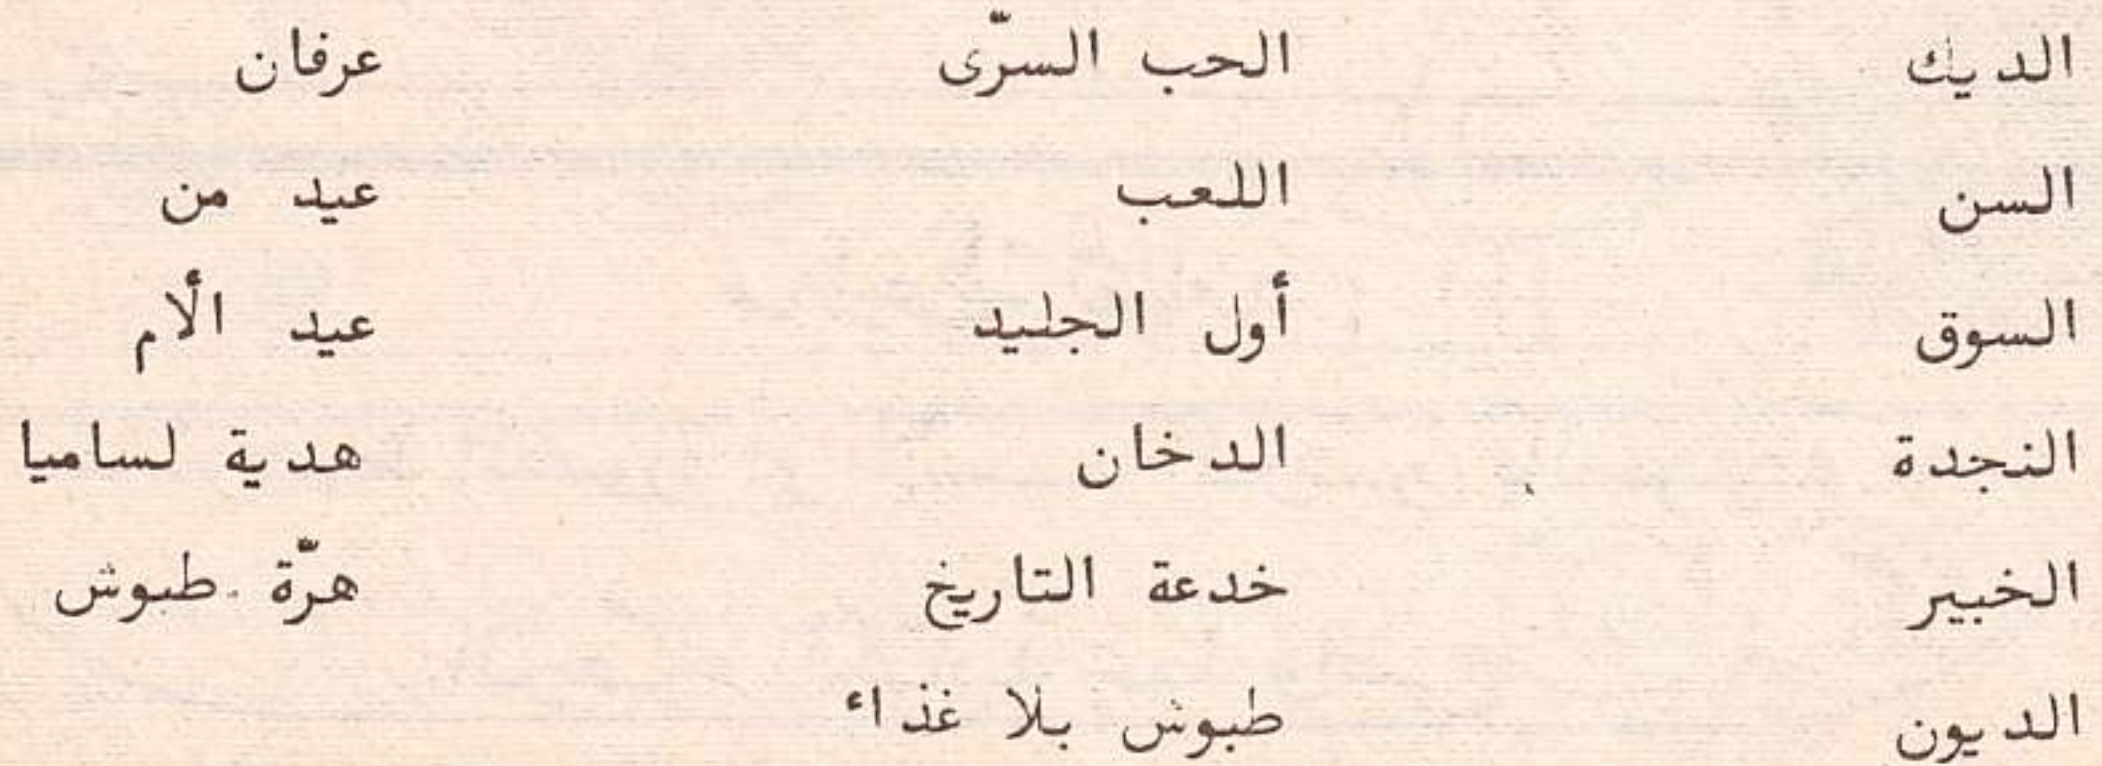 الديك
السن
السوق
النجدة
الخبير
الديون
الحب السرّى
اللعب
أول الجليد
الدخان
خدعة التاريخ
طبوش بلا غذاء
عرفان
عيد من
عيد الأم
هدية لساميا
هرّة طبوش